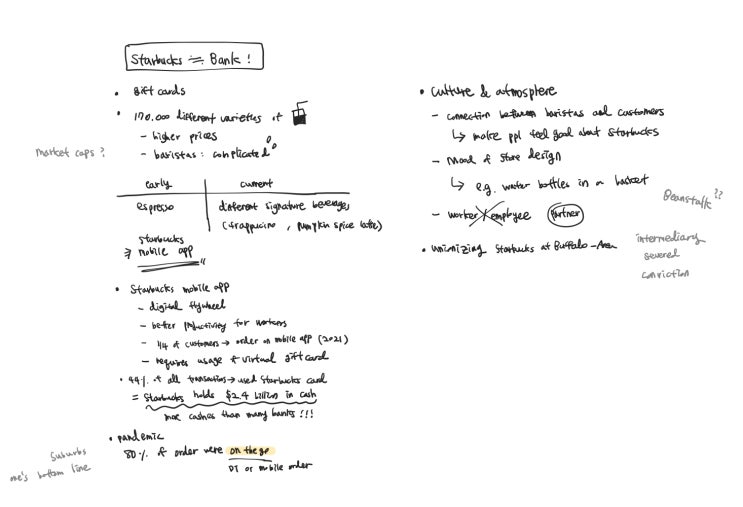 Starbucks ≒ Bank !
• Gift cards
• 170.000 different varieties of
– higher prices
– baristas : complicated
market caps ?
early current
espresso different signature beverages
(frappucino , pumpkin spice latte)
Starbucks
mobile app
• Starbucks mobile app
– digital flywheel
– better productivity for workers
– 1/4 of customers → order on mobile app (2021)
– requires usage of virtual gift card
• 44% of all transaction → used Starbucks card
= Starbucks holds $2.4 billion in cash
more cashes than many banks !!!
• pandemic
80% of order were on the go
DT or mobile order
suburbs
one's bottom line
• culture & atmosphere
– connection between baristas and customers
↳ make ppl feel good about Starbucks
– Mood of store design
↳ e.g. water bottles in a basket
Beanstalk ??
– worker employee partner
• unionizing Starbucks at Buffalo-Area
intermediary
severed
conviction